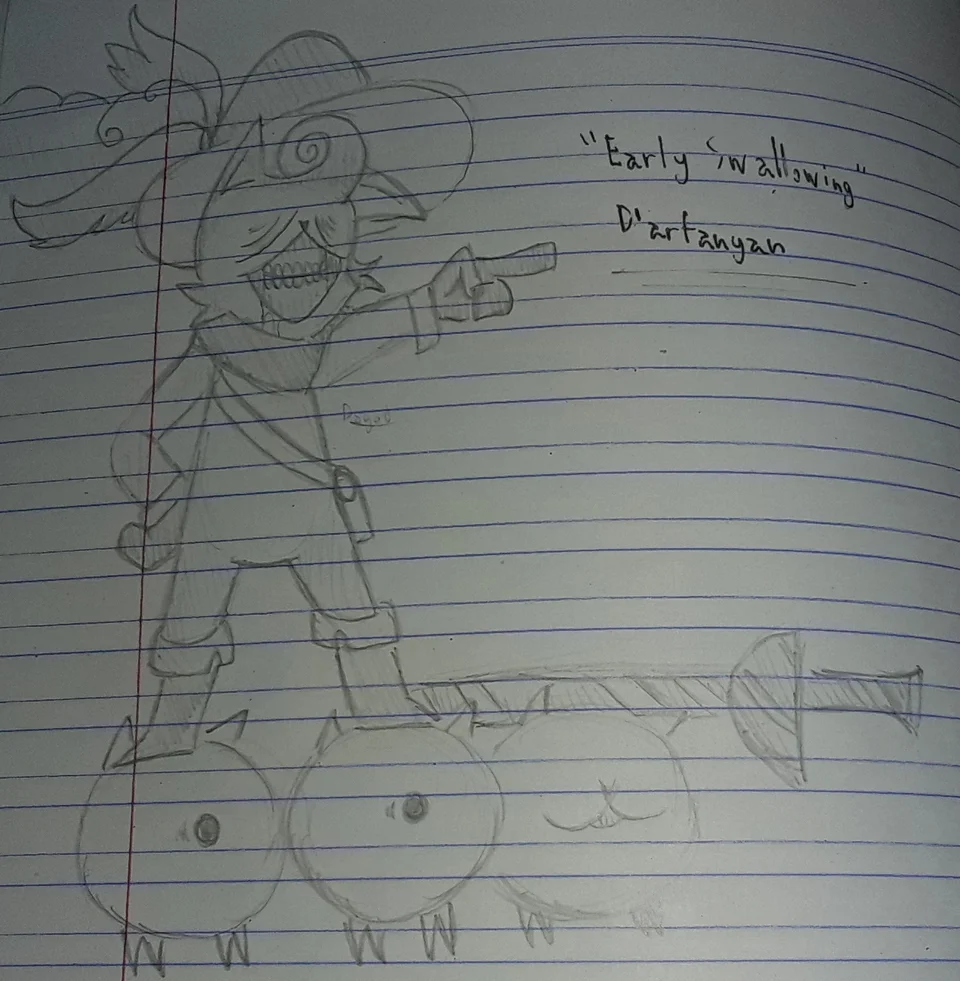 "Early Swallowing"
D'artanyan